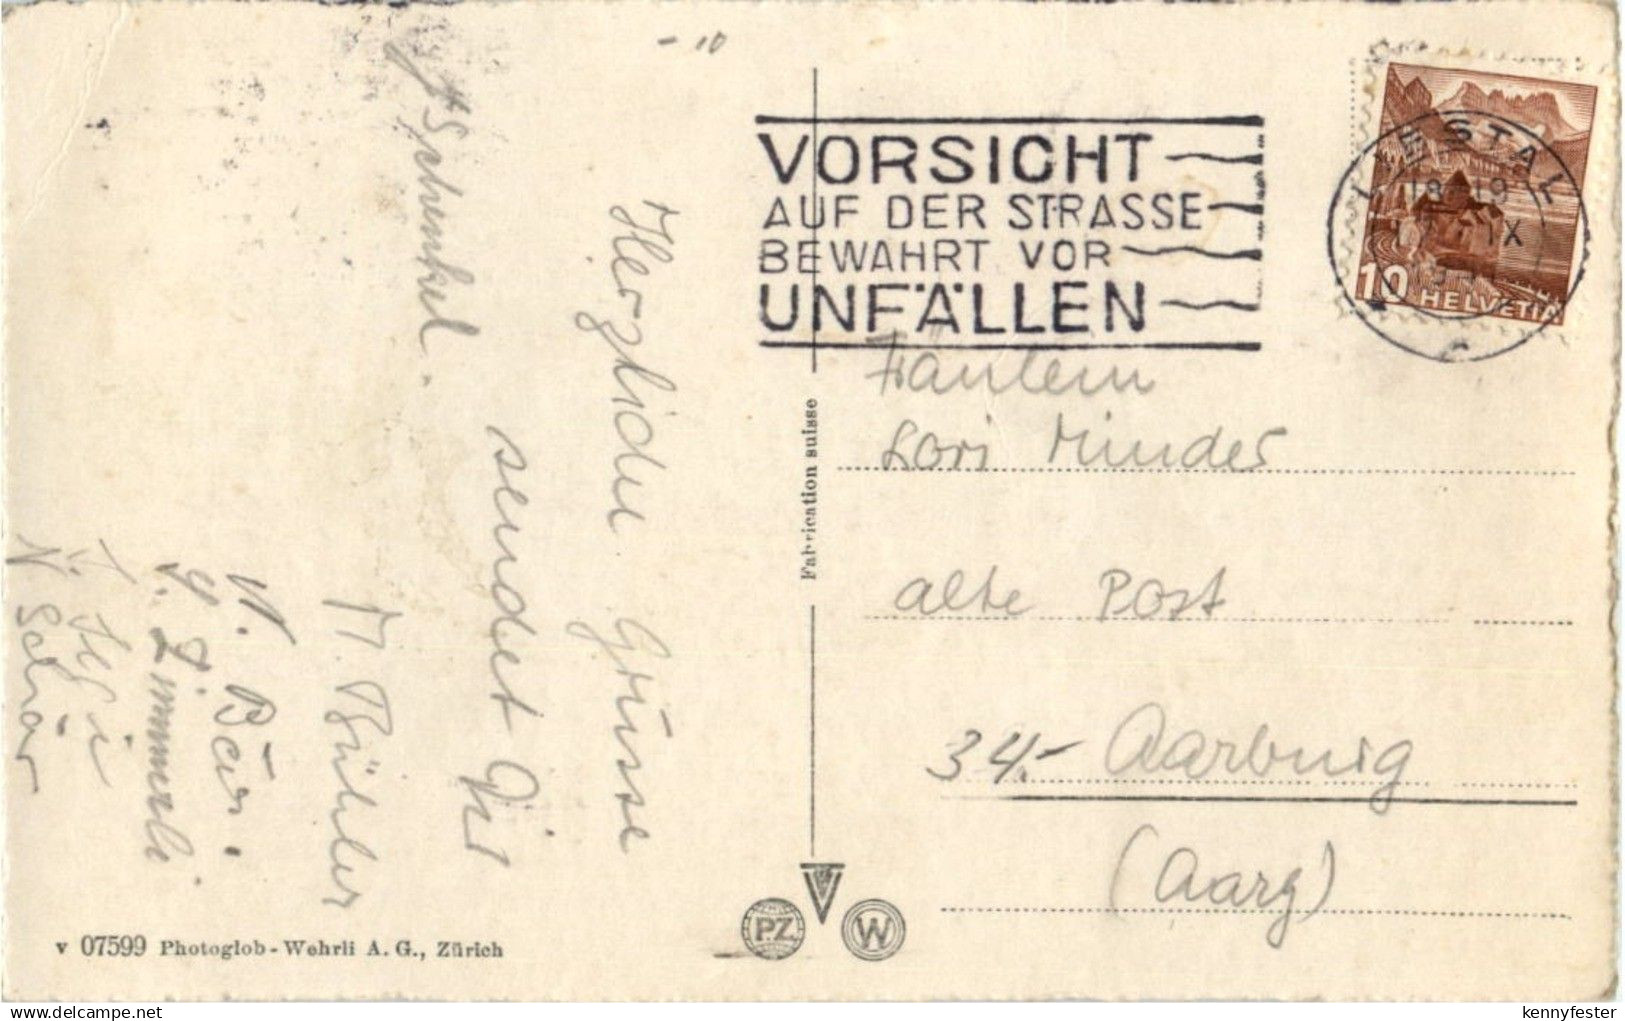 - 10
Herzliche Grüsse
sendet
Schenkel.
M. Bühler
W. Bär.
Zimmerli
Schär
VORSICHT
AUF DER STRASSE
BEWAHRT VOR
UNFÄLLEN
LIESTAL
18-19
IX
10 HELVETIA
Fräulein
Lori Minder
alte Post
34.- Aarburg
(Aarg)
Fabrication suisse
P.Z.
W
v 07599 Photoglob-Wehrli A. G., Zürich
delcampe.net
kennyfester